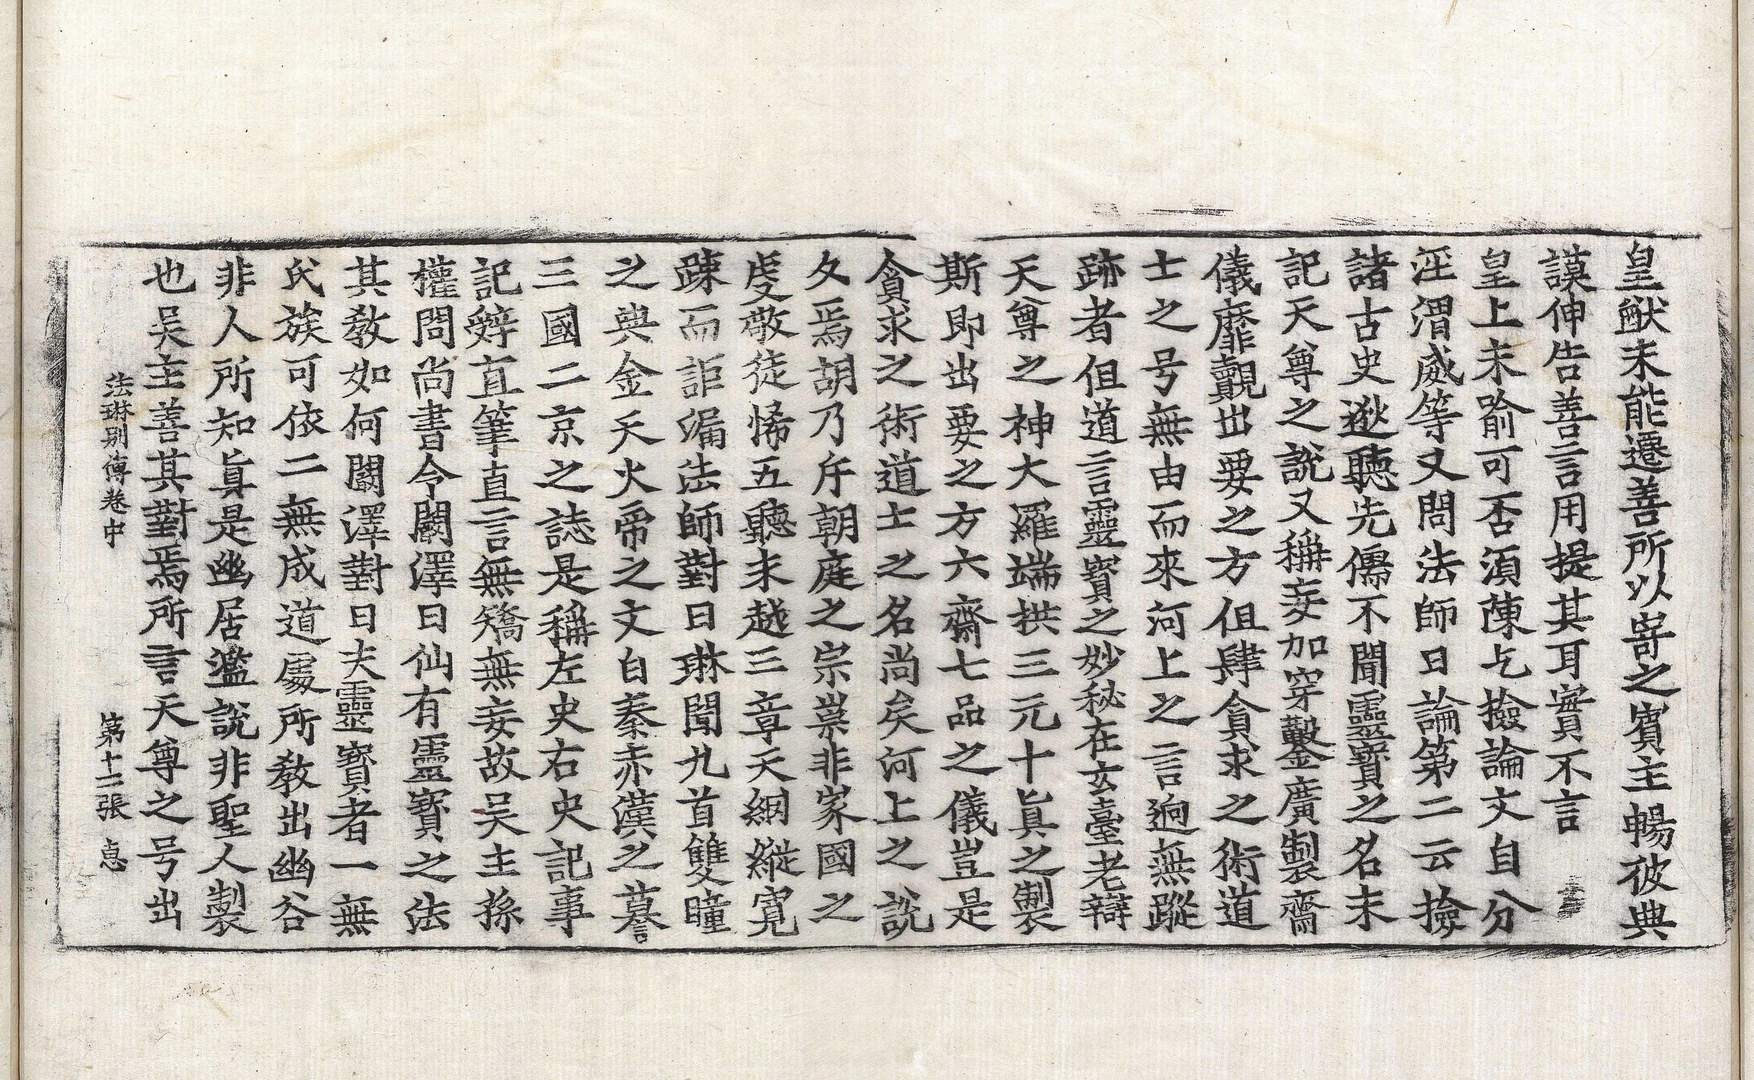 皇猷未能遷善所以寄之賓主暢彼典
謨伸告善言用提其耳實不言
皇上未喻可否須陳乞撿論文自分
涇渭威等又問法師曰論第二云撿
諸古史逖聽先儒不聞靈寶之名未
記天尊之說又稱妄加穿鑿廣製齋
儀靡覿出要之方但肆貪求之術道
士之号無由而來河上之言逈無蹤
跡者但道言靈寶之妙秘在玄臺老辯
天尊之神大羅端拱三元十眞之製
斯即出要之方六齋七品之儀豈是
貪求之術道士之名尚矣河上之說
久焉胡乃斥朝庭之宗業非家國之
虔敬徒悕五聽未越三章天網縱寬
踈而詎漏法師對曰琳聞九首雙瞳
之典金天火帝之文自秦赤漢之暮
三國二京之誌是稱左史右史記事
記辤直筆直言無矯無妄故吳主孫
權問尚書令闞澤曰仙有靈寶之法
其敎如何闞澤對曰夫靈寶者一無
氏族可依二無成道處所敎出幽谷
非人所知眞是幽居濫說非聖人製
也吳主善其對焉所言天尊之号出
法琳別傳卷中 第十二張 恵